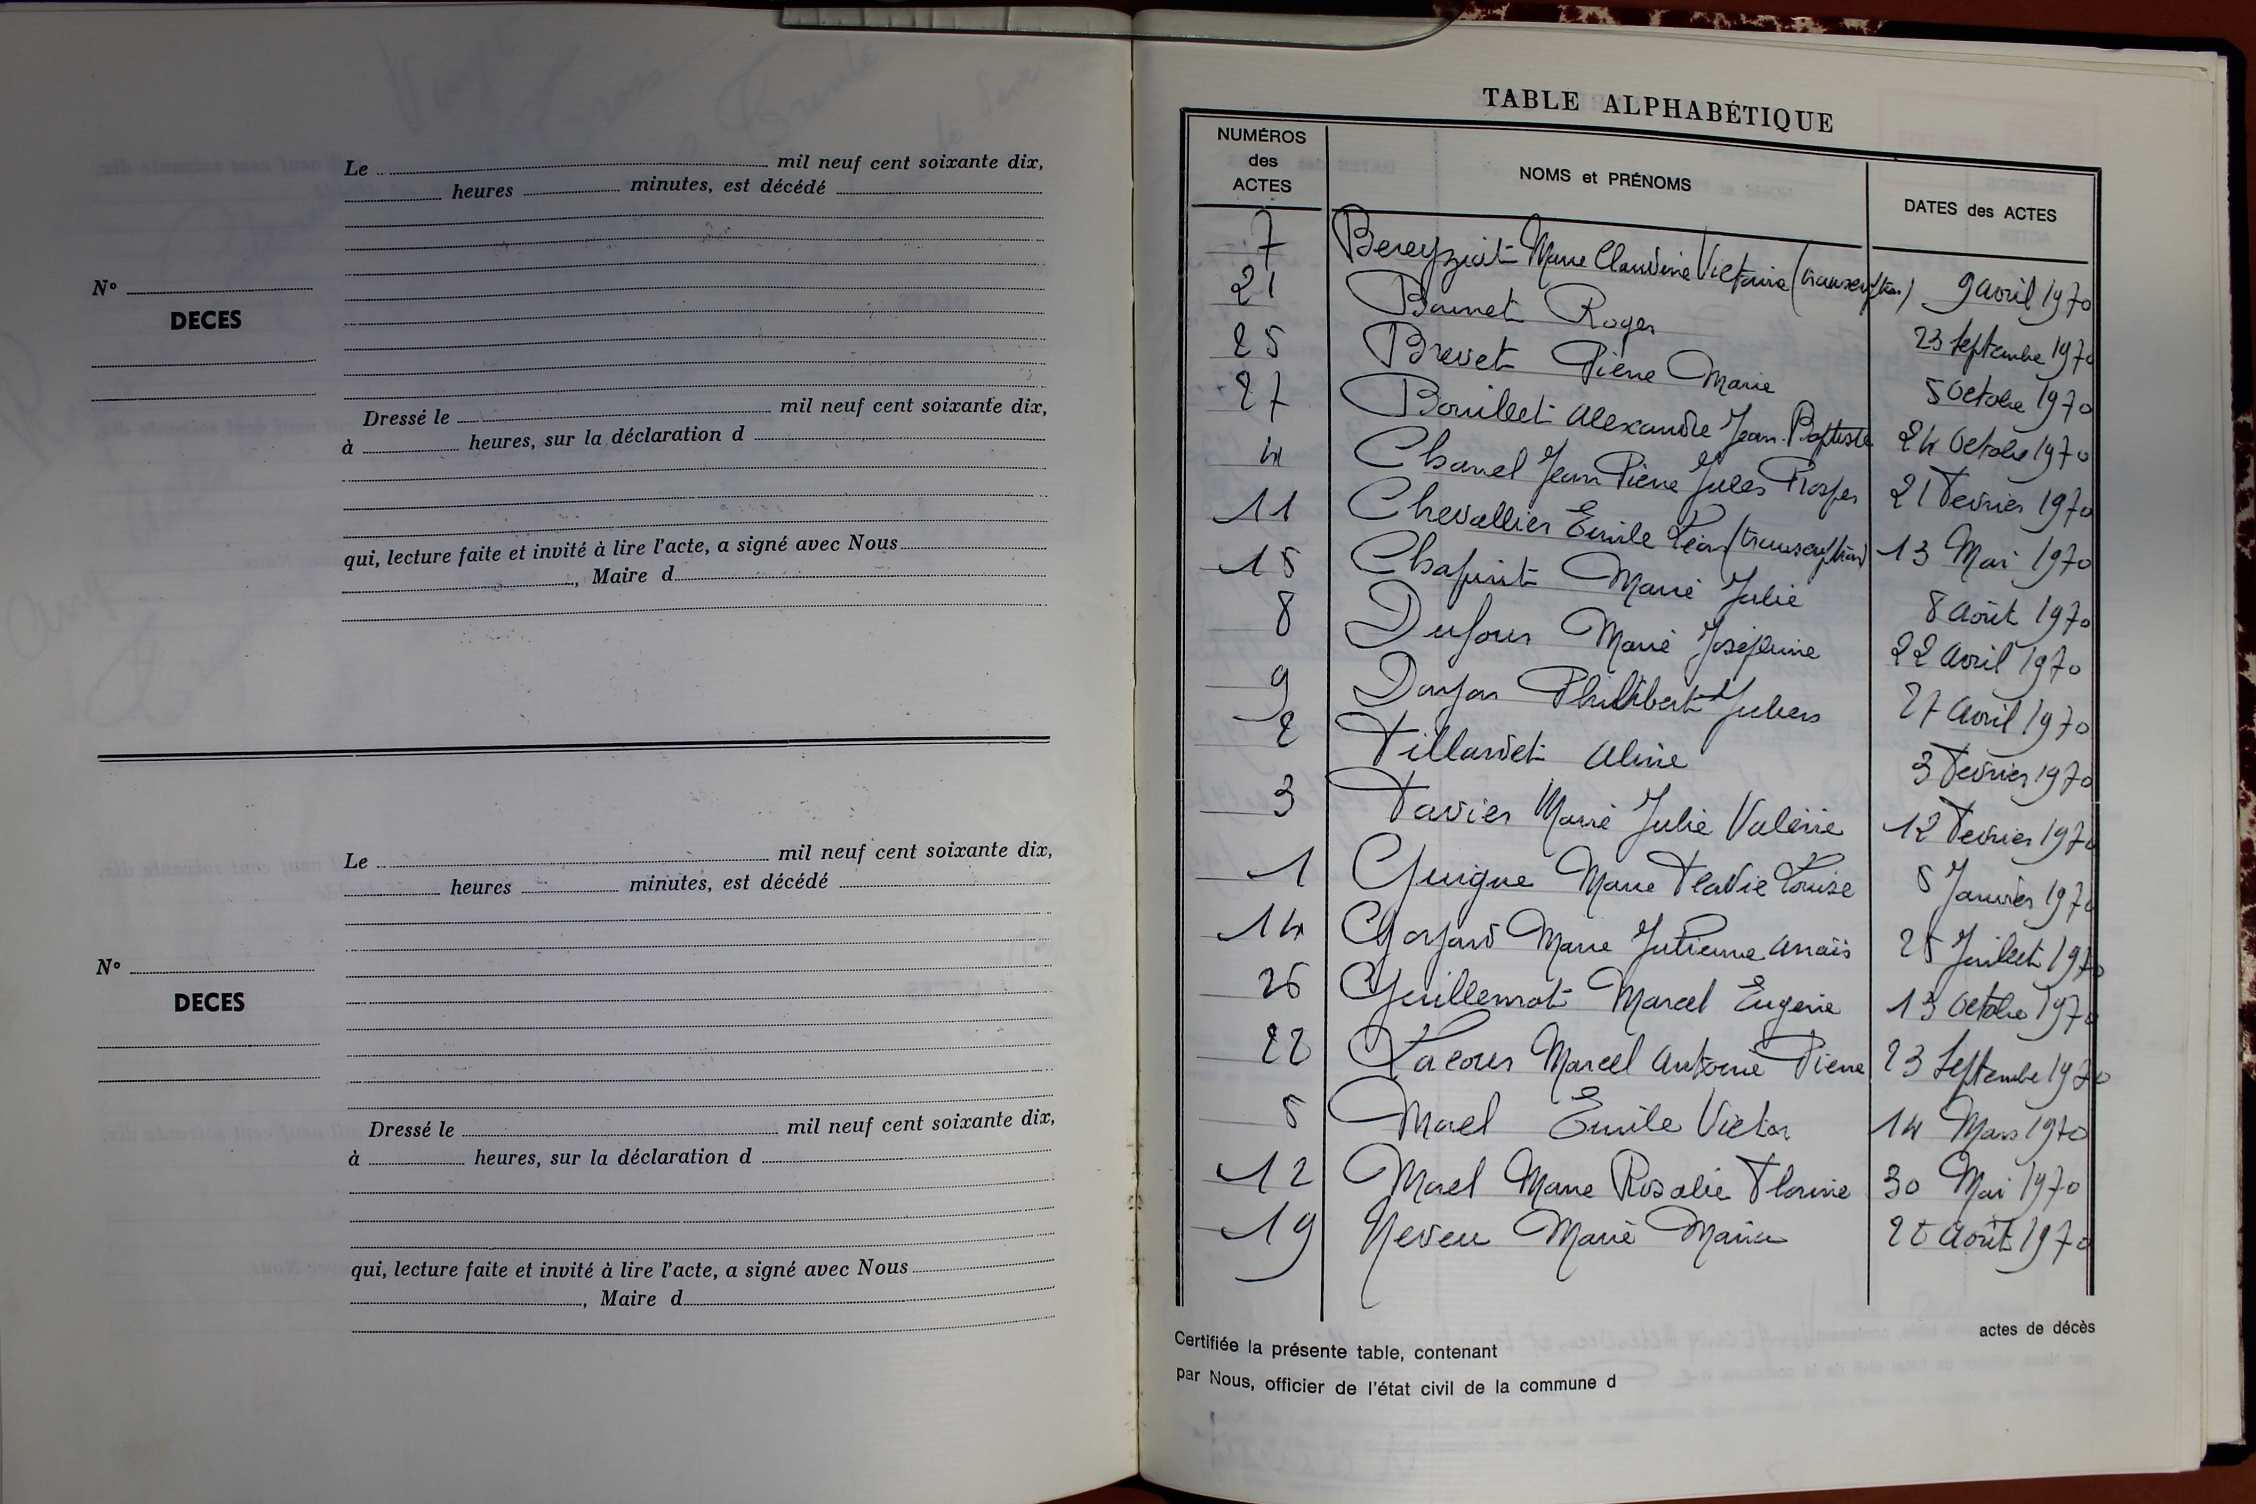 Le mil neuf cent soixante dix,
heures minutes, est décédé
N°
DECES
Dressé le mil neuf cent soixante dix,
à heures, sur la déclaration d
qui, lecture faite et invité à lire l'acte, a signé avec Nous
, Maire d
Le mil neuf cent soixante dix,
heures minutes, est décédé
N°
DECES
Dressé le mil neuf cent soixante dix,
à heures, sur la déclaration d
qui, lecture faite et invité à lire l'acte, a signé avec Nous
, Maire d
TABLE ALPHABÉTIQUE
NUMÉROS des ACTES NOMS et PRÉNOMS DATES des ACTES
7 Bereyziat Marie Claudine Victoire (transcription) 9 avril 1970
21 Roger 23 Septembre 1970
25 Brevet Pierre Marie 5 Octobre 1970
27 Bouillet Alexandre Jean-Baptiste 24 Octobre 1970
4 Charvel Jean Pierre Jules Prosper 21 Fevrier 1970
11 Chevallier Emile Léon (transcription) 13 Mai 1970
15 Marie Julie 8 août 1970
8 Dufour Marie Joséphine 22 avril 1970
9 Philibert 27 avril 1970
2 Fillardet Aline 3 Fevrier 1970
3 Favier Marie Julie Valérie 12 Fevrier 1970
1 Guigue Marie Flavie Louise 5 Janvier 1970
14 Goyard Marie Julienne Anaïs 25 Juillet 1970
26 Guillemot Marcel Eugène 13 Octobre 1970
22 Lacour Marcel Antoine Pierre 23 Septembre 1970
5 Morel Emile Victor 14 Mars 1970
12 Morel Marie Rosalie Florine 30 Mai 1970
19 Neveu Marie Maria août 1970
Certifiée la présente table, contenant actes de décès
par Nous, officier de l'état civil de la commune d